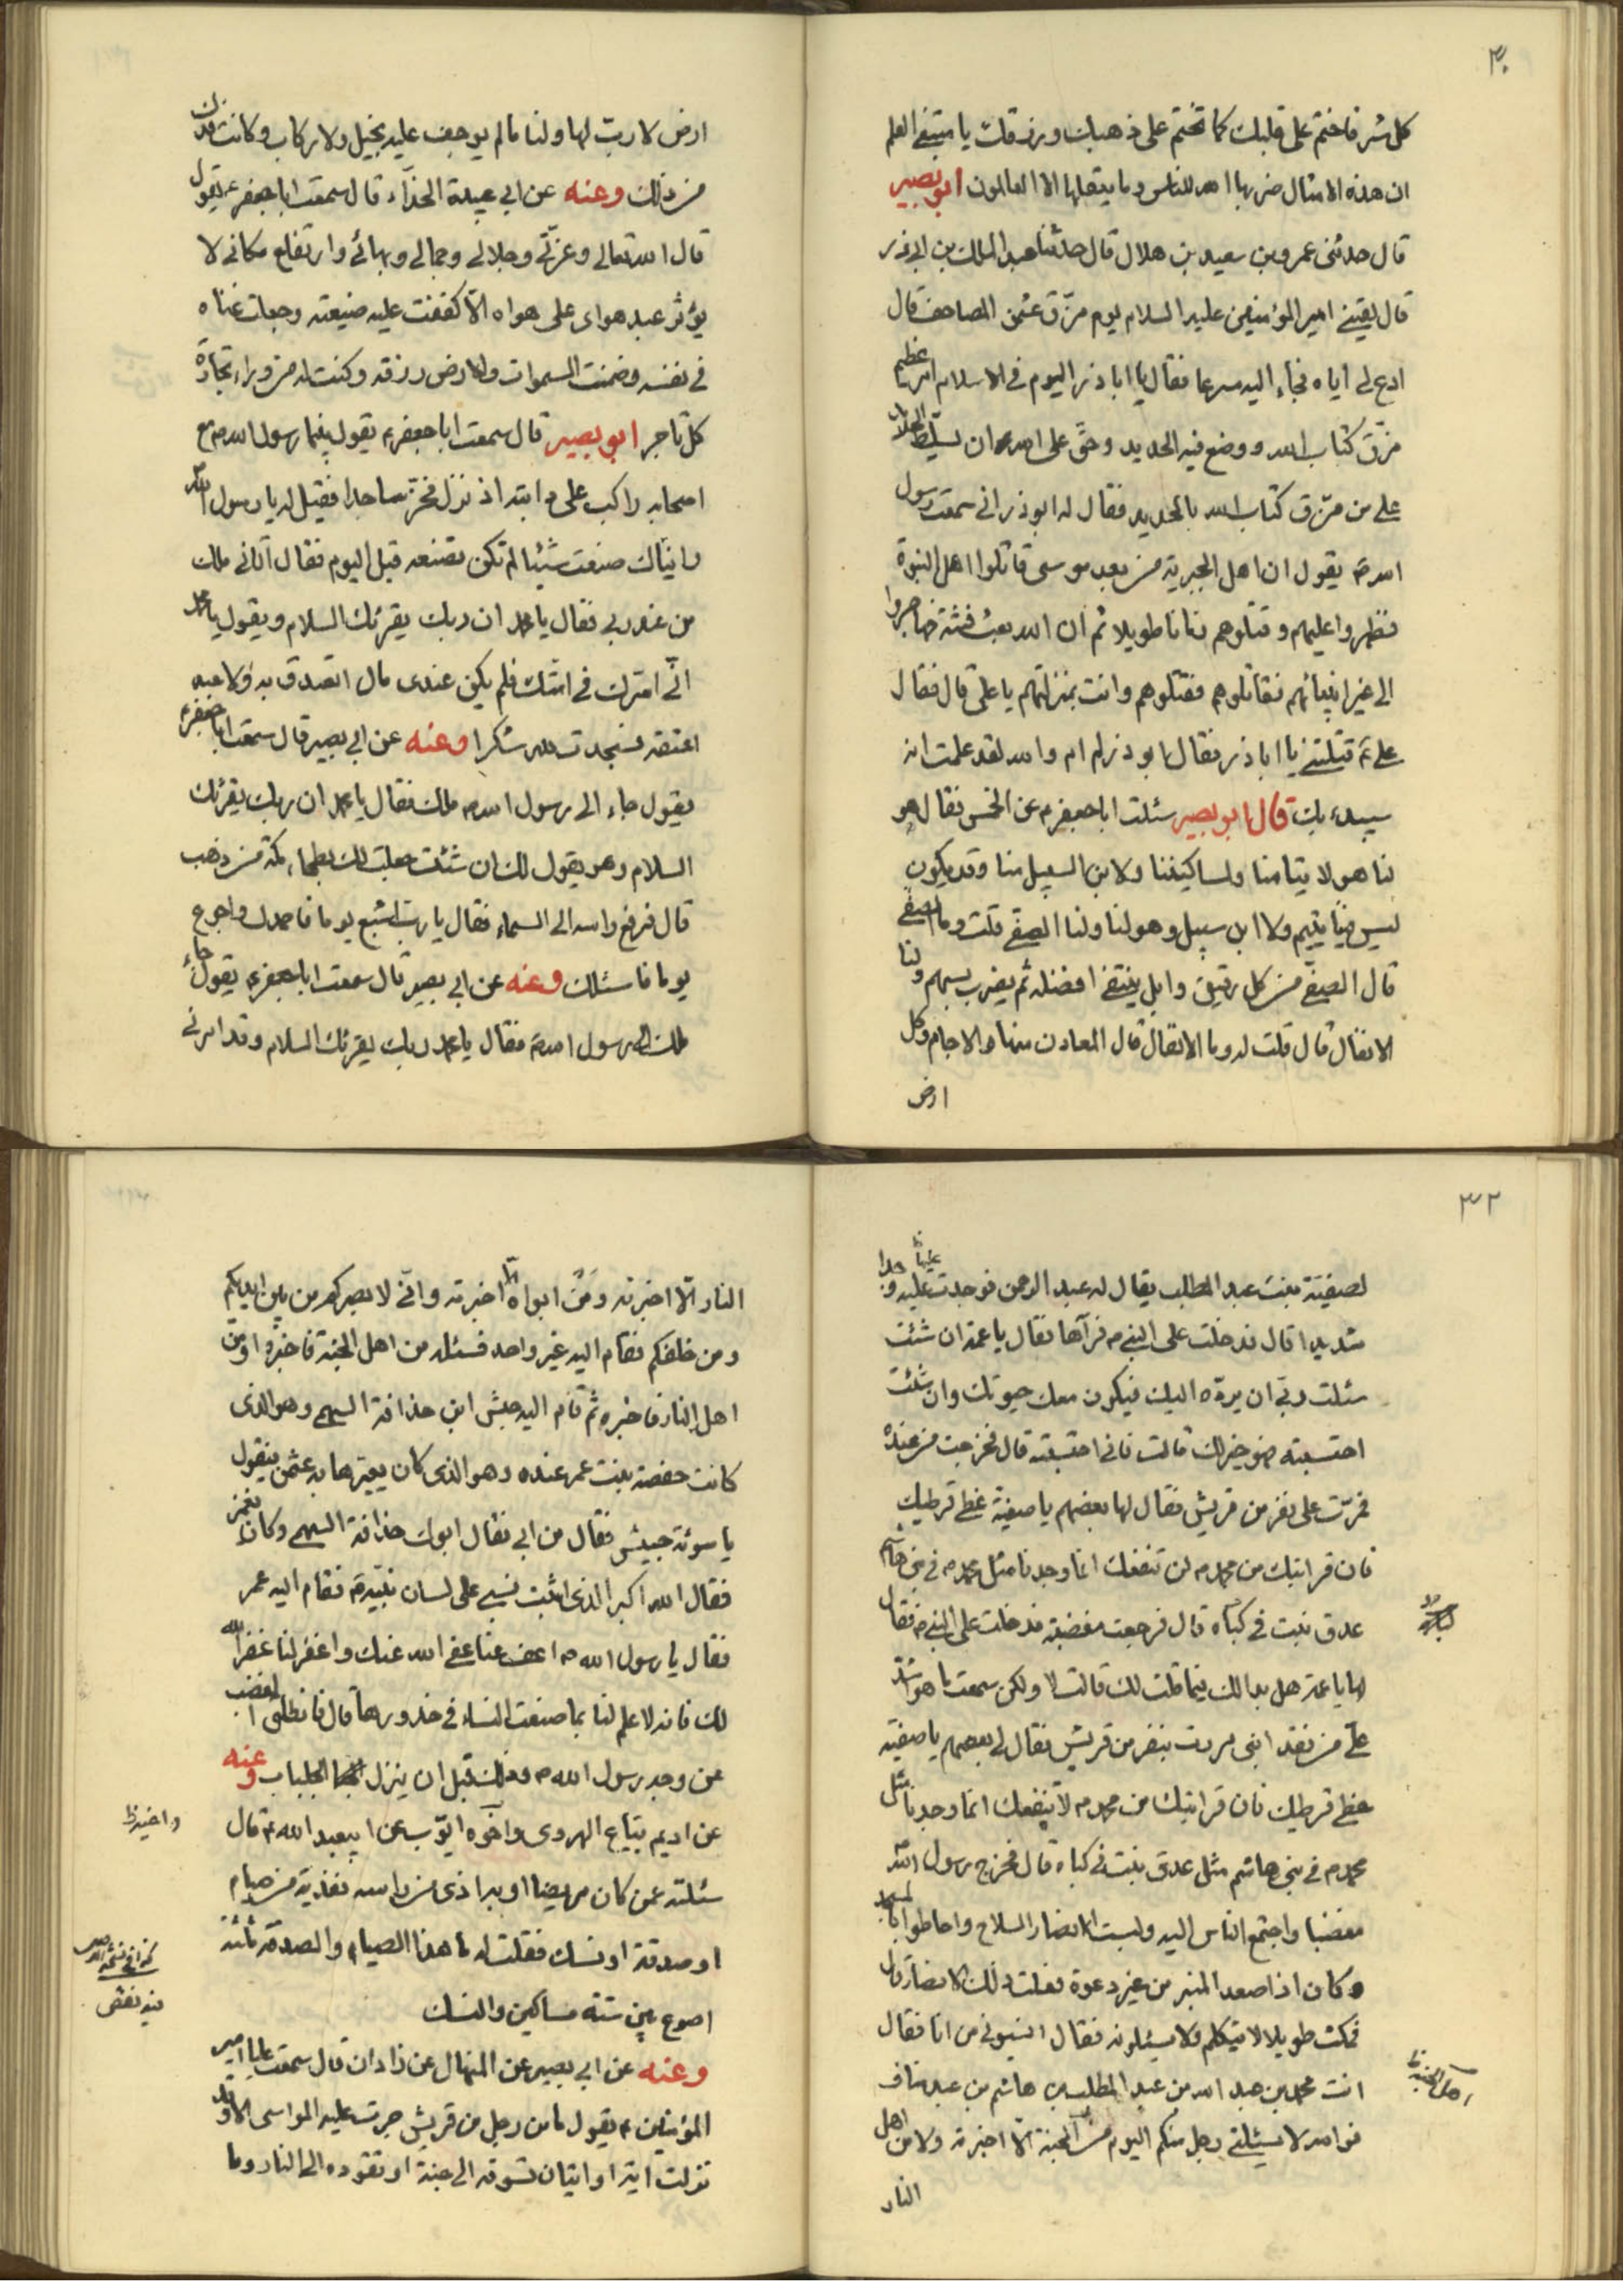 ٣٠
كل شر فاختم على قلبك كما تختم على ذهبك ورزقك يا مبتغي العلم
ان هذه الامثال ضربها الله للناس وما يعقلها الا العالمون ابو بصير
قال حدثني عمرو بن سعيد بن هلال قال حدثنا عبد الملك بن ابي ذر
قال لقيني امير المؤمنين عليه السلام يوم مزّق عثمن المصاحف قال
ادع لي اباه فجاء اليه مسرعا فقال يا ابا ذر اليوم في الاسلام امر عظيم
مزّق كتاب الله ووضع فيه الحديد وحقّ على الله ان يسلّط الحديد
على من مزّق كتاب الله بالحديد فقال له ابو ذر اني سمعت رسول
الله ص يقول ان اهل الجبرية من بعد موسى قاتلوا اهل النبوة
فظهروا عليهم وقتلوهم زمانا طويلا ثم ان الله بعث فتية فهاجروا
الى غير انبيائهم فقاتلوهم فقتلوهم وانت بمنزلتهم يا علي قال فقال
علي ع قتلتني يا ابا ذر فقال ابو ذر له ام والله لقد علمت انه
سيبدء بك قال ابو بصير سئلت ابا جعفر ع عن الخمس فقال هو
لنا هو لايتامنا ولمساكيننا ولابن السبيل منا وقد يكون
ليس فينا يتيم ولا ابن سبيل وهو لنا ولنا الصفي قلت وما الصفي
قال الصفي من كل رقيق وابل يبتغي افضله ثم يضرب بسهم ولنا
الانفال قال قلت له وما الانفال قال المعادن منها والاجام وكل
ارض
ارض لا ربّ لها ولنا ما لم يوجف عليه بخيل ولا ركاب وكانت فدك
من ذلك وعنه عن ابي عبيدة الحذّاء قال سمعت ابا جعفر ع يقول
قال الله تعالى وعزّتي وجلالي وجمالي وبهائي وارتفاع مكاني لا
يؤثر عبد هواي على هواه الّا كففت عليه ضيعته وجعلت غناه
في نفسه وضمنت السموات والارض رزقه وكنت له من وراء تجارة
كل تاجر ابو بصير قال سمعت ابا جعفر ع يقول بينما رسول الله ص مع
اصحابه راكب على دابته اذ نزل فخرّ ساجدا فقيل له يا رسول الله
رايناك صنعت شيئا لم تكن تصنعه قبل اليوم فقال اتاني ملك
من عند ربي فقال يا محمد ان ربك يقرئك السلام ويقول يا محمد
انّي اسرّك في امتك فلم يكن عندي مال اتصدق به ولا عبد
اعتقه فسجدت لله شكرا وعنه عن ابي بصير قال سمعت ابا جعفر ع
يقول جاء الى رسول الله ص ملك فقال يا محمد ان ربك يقرئك
السلام وهو يقول لك ان شئت جعلت لك بطحاء مكة من ذهب
قال فرفع راسه الى السماء فقال يا رب اشبع يوما فاحمدك واجوع
يوما فاسئلك وعنه عن ابي بصير قال سمعت ابا جعفر ع يقول جاء
ملك الى رسول الله ص فقال يا محمد ربك يقرئك السلام وقد امرني
٣٢
لصفيّة بنت عبد المطلب يقال له عبد الرحمن فوجدت عليه وجدا
شديدا قال فدخلت على النبي ص فرآها فقال يا عمة ان شئت
سئلت ربّي ان يردّه اليك فيكون معك حيوتك وان شئت
احتسبته فهو خير لك قالت فاني احتسبته قال فخرجت من عنده
فمرّت على نفر من قريش فقال لها بعضهم يا صفية غطي قرطيك
فان قرابتك من محمد ص لن تنفعك انما وجدنا مثل محمد ص في بني هاشم
عذق نبت في كباه قال فرجعت مغضبة فدخلت على النبي ص فقال
لها يا عمة هل بدا لك فيما قلت لك قالت لا ولكن سمعت ما هو اشدّ
عليّ من فقد ابني مررت بنفر من قريش فقال لي بعضهم يا صفيّة
غطي قرطيك فان قرابتك من محمد ص لا تنفعك انما وجدنا مثل
محمد ص في بني هاشم مثل عذق نبت في كباه قال فخرج رسول الله ص
مغضبا واجتمع الناس اليه ولبست الانصار السلاح واحاطوا بالمسجد
وكان اذا صعد المنبر من غير دعوة فعلت ذلك الانصار قال
فمكث طويلا لا يتكلم ولا يسئلونه فقال انسبوني من انا فقال
انت محمد بن عبد الله بن عبد المطلب بن هاشم بن عبد مناف
فوالله لا يسئلني رجل منكم اليوم من الجنة الّا اخبرته ولا من اهل
النار
النار الّا اخبرته ومن ابواه الّا اخبرته وانّي لا بصركم من بين ايديكم
ومن خلفكم فقام اليه غير واحد فسئله من اهل الجنة فاخبره او من
اهل النار فاخبره ثم قام اليه حبش ابن حذافة السهمي وهو الذي
كانت حفصة بنت عمر عنده وهو الذي كان يعيّرها به عثمن فيقول
يا سوئة حبيش فقال من ابي فقال ابوك حذافة السهمي وكان يغمز
فقال الله اكبر الذي اثبت نسبي على لسان نبيّه ص فقام اليه عمر
فقال يا رسول الله ص اعف عنا عفى الله عنك واغفر لنا غفر الله
لك فانه لا علم لنا بما صنعت النساء في خدورها قال فانطلق الغضب
عن وجه رسول الله ص وذلك قبل ان ينزل الجلباب وعنه
عن اديم بيّاع الهروي واخوه ايّوب عن ابيعبد الله ع قال
سئلته عمن كان مريضا او به اذى من راسه ففدية من صيام
او صدقة او نسك فقلت له ما هذا الصيام والصدقة ثلثة
اصوع بين ستة مساكين والنسك
وعنه عن ابي بصير عن المنهال عن زادان قال سمعت عليا امير
المؤمنين ع يقول ما من رجل من قريش جرت عليه المواسي الا وقد
نزلت اية او ايتان تسوقه الى جنة او تقوده الى النار وما
واخيه ظ